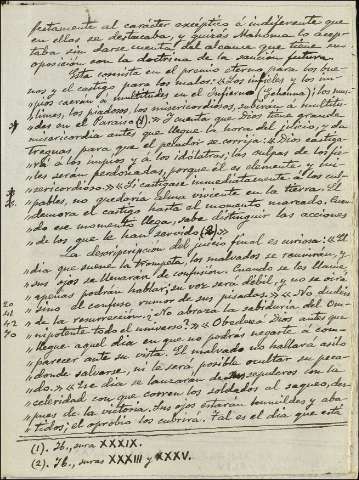 fectamente al carácter escéptico é indiferente que
en ellas se destacaba, y quizás Mahoma lo acep-
taba sin darse cuenta del alcance que tiene su
oposición con la doctrina de la sanción futura.
Esta consiste en el premio eterno para los bue-
nos y el castigo para los malos: «Los infieles y los im-
»píos caerán á multitudes en el Infierno (Gehenna); los mus-
»limes, los piadosos, los misericordiosos, subirán á multitu-
»des en el Paraíso (1).» Y cuenta que Dios tiene grande
misericordia antes que llegue la hora del juicio, y da
treguas para que el pecador se corrija: «Dios castiga-
»rá á los impíos y á los idólatras; las culpas de los fie-
»les serán perdonadas, porque él es clemente y mi-
»sericordioso.» «Si castigase inmediatamente á los cul-
»pables, no quedaría alma viviente en la tierra. El
»demora el castigo hasta el momento marcado. Cuan-
»do ese momento llega, sabe distinguir las acciones
»de los que le han servido (2).»
La descripción del juicio final es curiosa: «El
»día que suene la trompeta, los malvados se reunirán, y
»sus ojos se llenarán de confusión. Cuando se les llame,
»apenas podrán hablar; su voz será débil, y no se oirá
»sino el confuso rumor de sus pisadas.» «No dudéis
»de la resurrección: ¿No abraza la sabiduría del Om-
»nipotente todo el universo?» «Obedeced á Dios antes que
»llegue aquel día en que no podrás negarte á com-
»parecer ante su vista. El malvado no hallará asilo
»donde salvarse, ni le será posible ocultar su peca-
»do.» «Ese día se lanzarán de sus sepulcros con la
»celeridad con que corren los soldados al saqueo, des-
»pues de la victoria. Sus ojos estarán humildes y aba-
»tidos; el oprobio los cubrirá. Tal es el día que está
20
41
42
70
(1). Ib., sura XXXIX.
(2). Ib., suras XXXIII y XXXV.